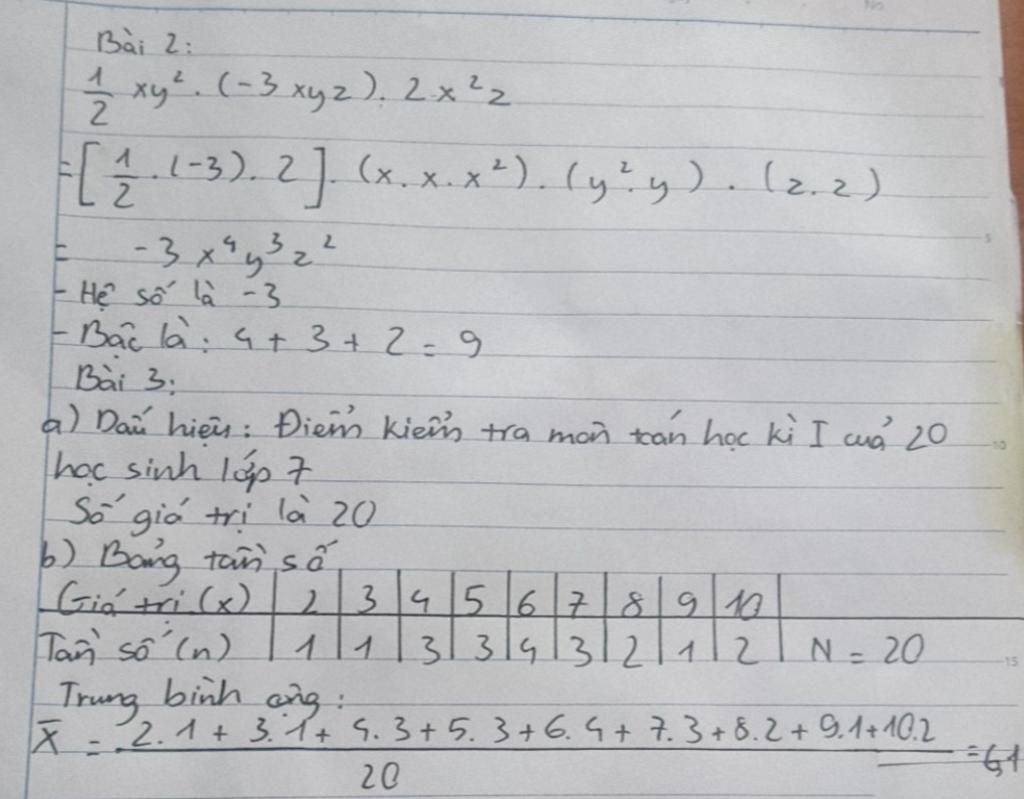 Bài 2:
1/2 xy². (-3xyz). 2x²z
= [1/2 . (-3) . 2] . (x. x. x²) . (y². y) . (z. z)
= -3x⁴y³z²
- Hệ số là -3
- Bậc là: 4 + 3 + 2 = 9
Bài 3:
a) Dấu hiệu: Điểm kiểm tra môn toán học kì I của 20
học sinh lớp 7
Số giá trị là 20
b) Bảng tần số
Giá trị (x) | 2 | 3 | 4 | 5 | 6 | 7 | 8 | 9 | 10 |
Tần số (n) | 1 | 1 | 3 | 3 | 4 | 3 | 2 | 1 | 2 | N = 20
Trung bình cộng:
X̄ = (2.1 + 3.1 + 4.3 + 5.3 + 6.4 + 7.3 + 8.2 + 9.1 + 10.2) / 20 = 6,1
No
5
10
15